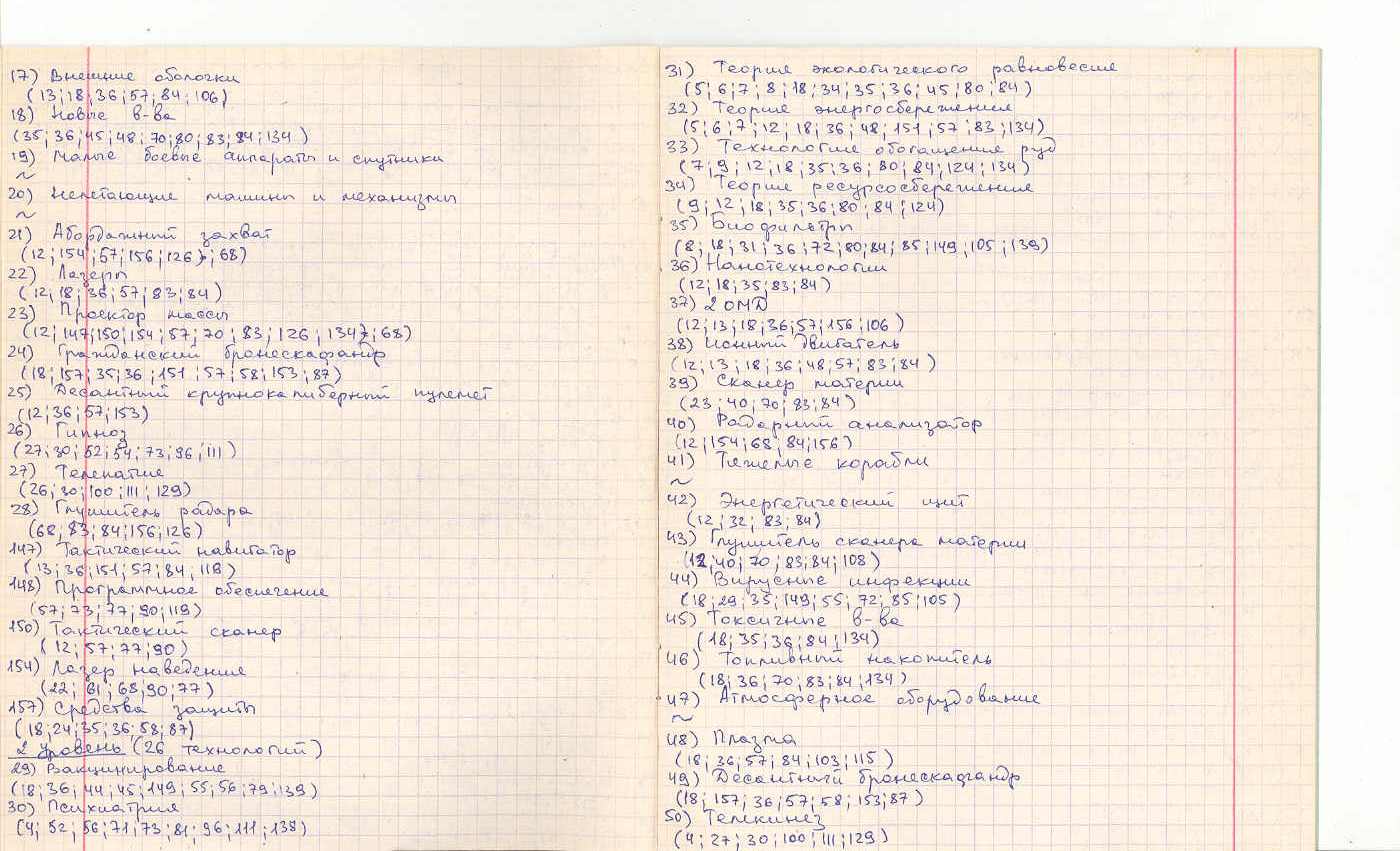 17) Внешние оболочки
(13;18;36;57;84;106)
18) Новые в-ва
(35;36;45;48;70;80;83;84;134)
19) Малые боевые аппараты и спутники
~
20) Нелетающие машины и механизмы
~
21) Абордажный захват
(12;154;57;156;126);68)
22) Лазеры
(12;18;36;57;83;84)
23) Проектор массы
(12;147;150;154;57;70;83;126;134);68)
24) Гражданский бронескафандр
(18;157;35;36;151;57;58;153;87)
25) Десантный крупнокалиберный пулемет
(12;36;57;153)
26) Гипноз
(27;30;52;54;73;96;111)
27) Телепатия
(26;30;100;111;129)
28) Глушитель радара
(68;83;84;156;126)
147) Тактический навигатор
(13;36;151;57;84;119)
148) Программное обеспечение
(57;73;77;90;119)
150) Тактический сканер
(12;57;77;90)
154) Лазер наведения
(22;61;68;90;77)
157) Средства защиты
(18;24;35;36;58;87)
2 уровень (26 технологий)
29) Вакцинирование
(18;36;44;45;149;55;56;79;139)
30) Психиатрия
(4;52;56;71;73;81;96;111;138)
31) Теория экологического равновесия
(5;6;7;8;18;34;35;36;45;80;84)
32) Теория энергосбережения
(5;6;7;12;18;36;48;151;57;83;134)
33) Технология обогащения руд
(7;9;12;18;35;36;80;84;124;134)
34) Теория ресурсосбережения
(9;12;18;35;36;80;84;124)
35) Биофильтры
(8;18;31;36;72;80;84;85;149;105;139)
36) Нанотехнологии
(12;18;35;83;84)
37) 2 ОМД
(12;13;18;36;57;156;106)
38) Ионный двигатель
(12;13;18;36;48;57;83;84)
39) Сканер материи
(23;40;70;83;84)
40) Радарный анализатор
(12;154;68;84;156)
41) Тяжелые корабли
~
42) Энергетический щит
(12;32;83;84)
43) Глушитель сканера материи
(12;40;70;83;84;108)
44) Вирусные инфекции
(18;29;35;149;55;72;85;105)
45) Токсичные в-ва
(18;35;36;84;134)
46) Топливный накопитель
(18;36;70;83;84;134)
47) Атмосферное оборудование
~
48) Плазма
(18;36;57;84;103;115)
49) Десантный бронескафандр
(18;157;36;57;58;153;87)
50) Телекинез
(4;27;30;100;111;129)